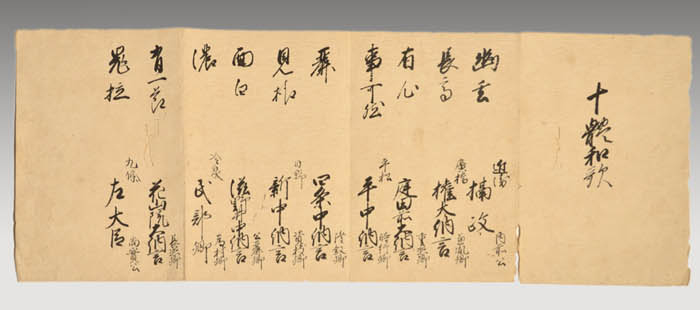 十體和歌
幽玄
近衛
攝政
内前公
長高
廣橋
權大納言
兼胤卿
有心
庭田前大納言
重熈卿
事可然
平松
平中納言
時行卿
麗
四条中納言
隆叙卿
見様
日野
新中納言
資枝卿
面白
滋野井中納言
公麗卿
濃
冷泉
民部卿
為村卿
有一節
花山院大納言
鬼拉
九條
左大臣
尚實公